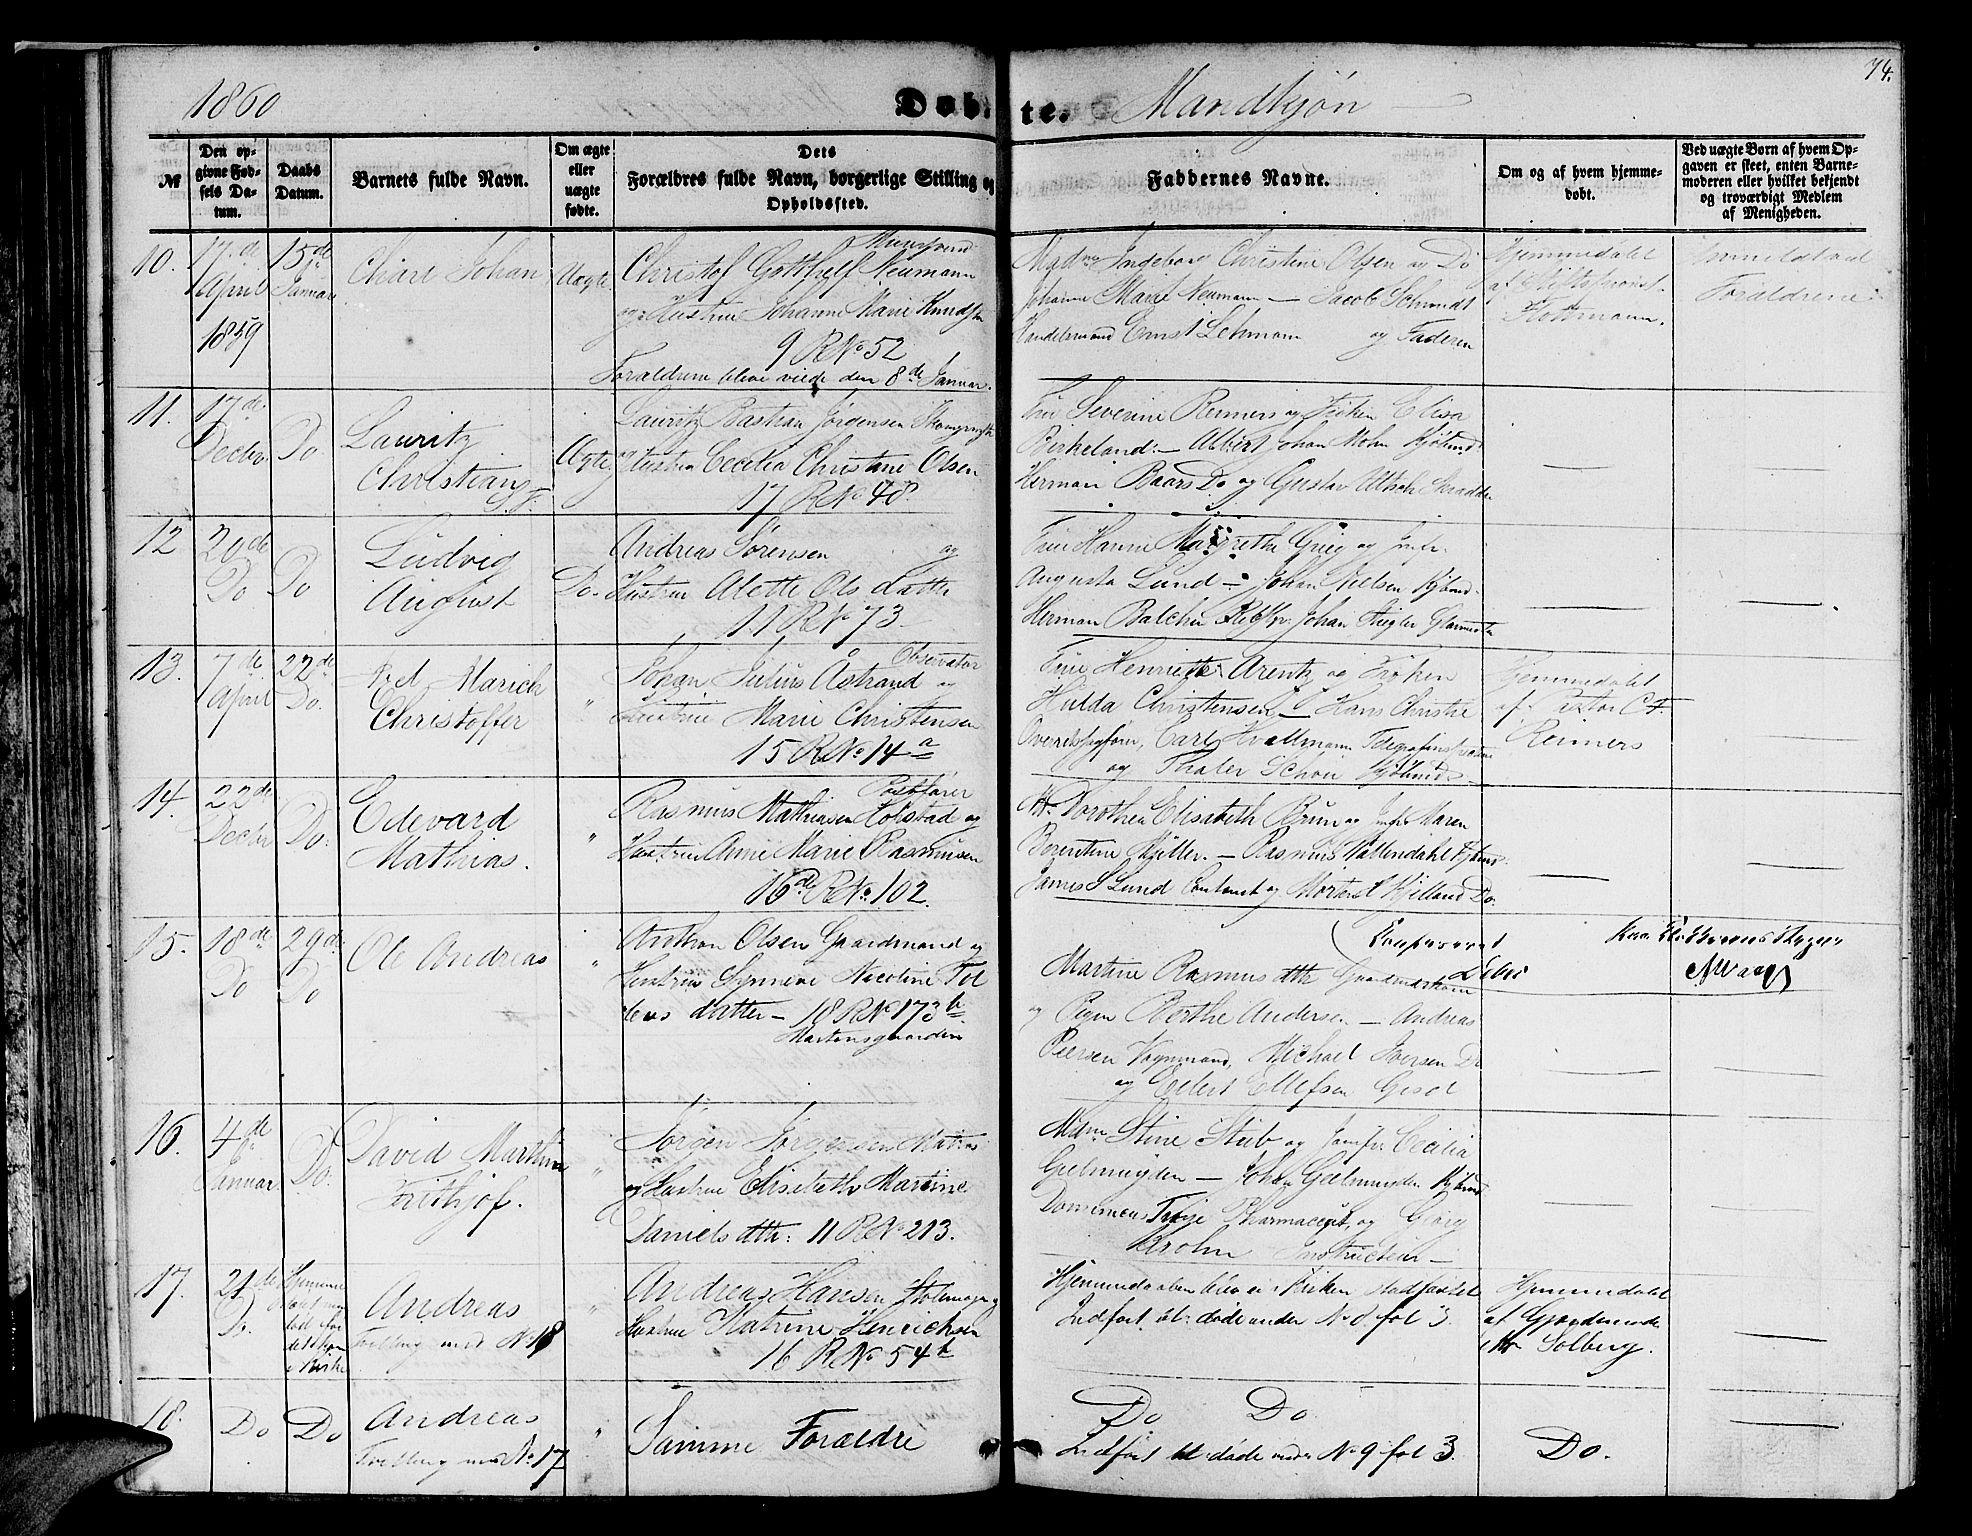 74.
1860
Døbte.
Mandkjøn
№
Den op-
givne Fød-
sels Da-
tum.
Daabs
Datum.
Barnets fulde Navn.
Om ægte
eller
uægte
fødte.
Dets
Forældres fulde Navn, borgerlige Stilling og
Opholdssted.
Faddernes Navne.
Om og af hvem hjemme-
døbt.
Ved uægte Børn af hvem Op-
gaven er skeet, enten Barne-
moderen eller hvilket bekjendt
og troværdigt Medlem
af Menigheden.
10.
17de
April
1859
15de
Januar
Johan
Uægte
Christof Gotthelf Neumann
og Hustrue Johanne Marie Knudsen
9 R No 52
Forældrene bleve viede den 8de Januar.
Madme Ingeborg Christine Olsen og Do
Johanne Marie Neumann — Jacob Schmidt
Handelsmand Ernst Lehmann og Faderen
Hjemmedøbt
af Stiftsprovst
Forældrene
11.
17de
Decbr
Do
Lauritz
Christian
Ægte
Lauritz Bastian Jørgensen
Hustrue Cecelia Christine Olsen
17 R No 48.
Severine Reimers og Frøken Elisa
Birkeland: — Albert Johan Mohn Kjøbmd
Herman Baars Do og Gustav
12
20de
Do
Do
Ludvig
August
Do.
Andreas Sørensen og
Hustrue Alette Ols datter
11 R No 73.
Frue Hanne Margrethe Grieg og Jomfr.
Augusta Lund — Johan Nielsen Kjbmd.
Herman Balchen Johan
13.
7de
April
22de
Do.
Marich
Christoffer
"
Observator
Johan Julius Åstrand og
Hustrue Marie Christensen
15 R No 14a
Frue Henriette Arentz og Frøken
Hulda Christensen — Hans Christie
Overretssagfører, Carl
og Thaler Schou Kjøbmds
Hjemmedøbt
af Pastor
Reimers
14.
22de
Decbr
Do.
Edevard
Mathias.
"
Postfører
Rasmus Mathiesen Holstad og
Hustrue Anne Marie Rasmusen
16de R No. 102.
Dorothea Elisabeth Brun og Jomfr Maren
Berentine Møller. — Rasmus Wallendahl Kjbmd.
James S Lund og Morten Kjelland Do.
15.
18de
Do
29de
Do
Ole Andreas
"
Anthon Olsen Gaardmand og
Hustrue Synneve Nicoline Tol
levs datter — 18 R No 173b
Mortensgaarden
Martine Rasmus dtr Gaardmdskone
og Pigen Berthe Andersen — Andreas
Peersen Vognmand, Michael Iversen Do
og Eilert Ellefsen
16.
4de
Januar
Do.
David Marthin
Frithjof.
"
Jørgen Jørgensen Matros
og Hustrue Elisebeth Martine
Daniels dtr: 11 R No 213.
Mdme Stine Stub og Jomfr. Cecilia
Geelmuyden — Johan Geelmuyden Kjbmd
Pharmaceut, og Georg
Krohn
17.
21de
Do.
Andreas
Tvilling med No 18
"
Andreas Hansen Stolemager og
Hustrue Katrine Henrichsen
16 R No 54b
Hjemmedaaben blev ei i Kirken stadfæstet
Indført bl: døde under No 8 fol 3
Hjemmedøbt
af Gjordemode
Solberg.
18.
Do
Do
Andreas
Tvilling med No 17
"
Samme Forældre
Do Do
Indført bl døde under No 9 fol 3.
Do.